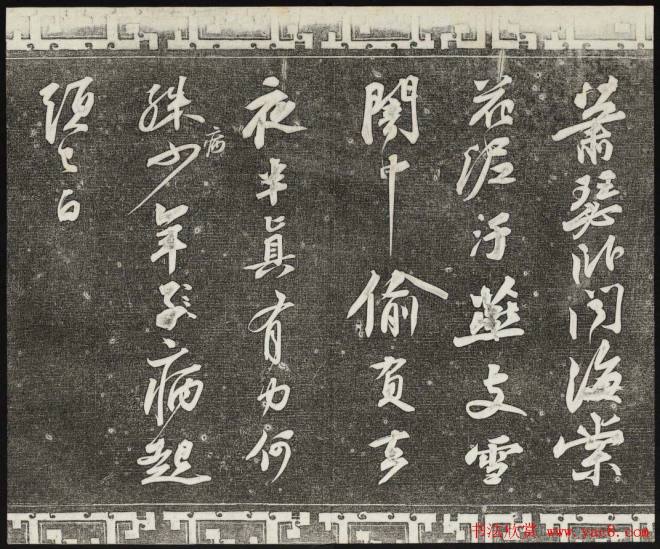 蕭瑟臥聞海棠
花泥汙燕支雪
闇中偷負去
夜半真有力何
殊病少年子病起
頭已白
书法欣赏 www.yac8.com